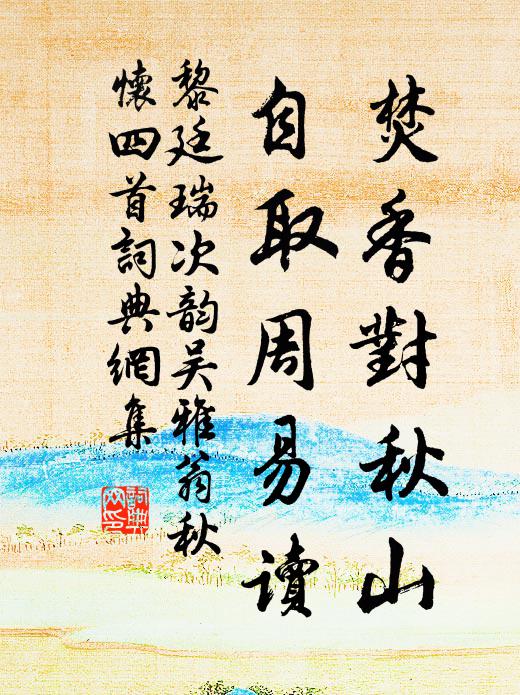 焚香對秋山
自取周易讀
黎廷瑞次韵吴雅翁秋
懷四首詞典網集
詞典
网印